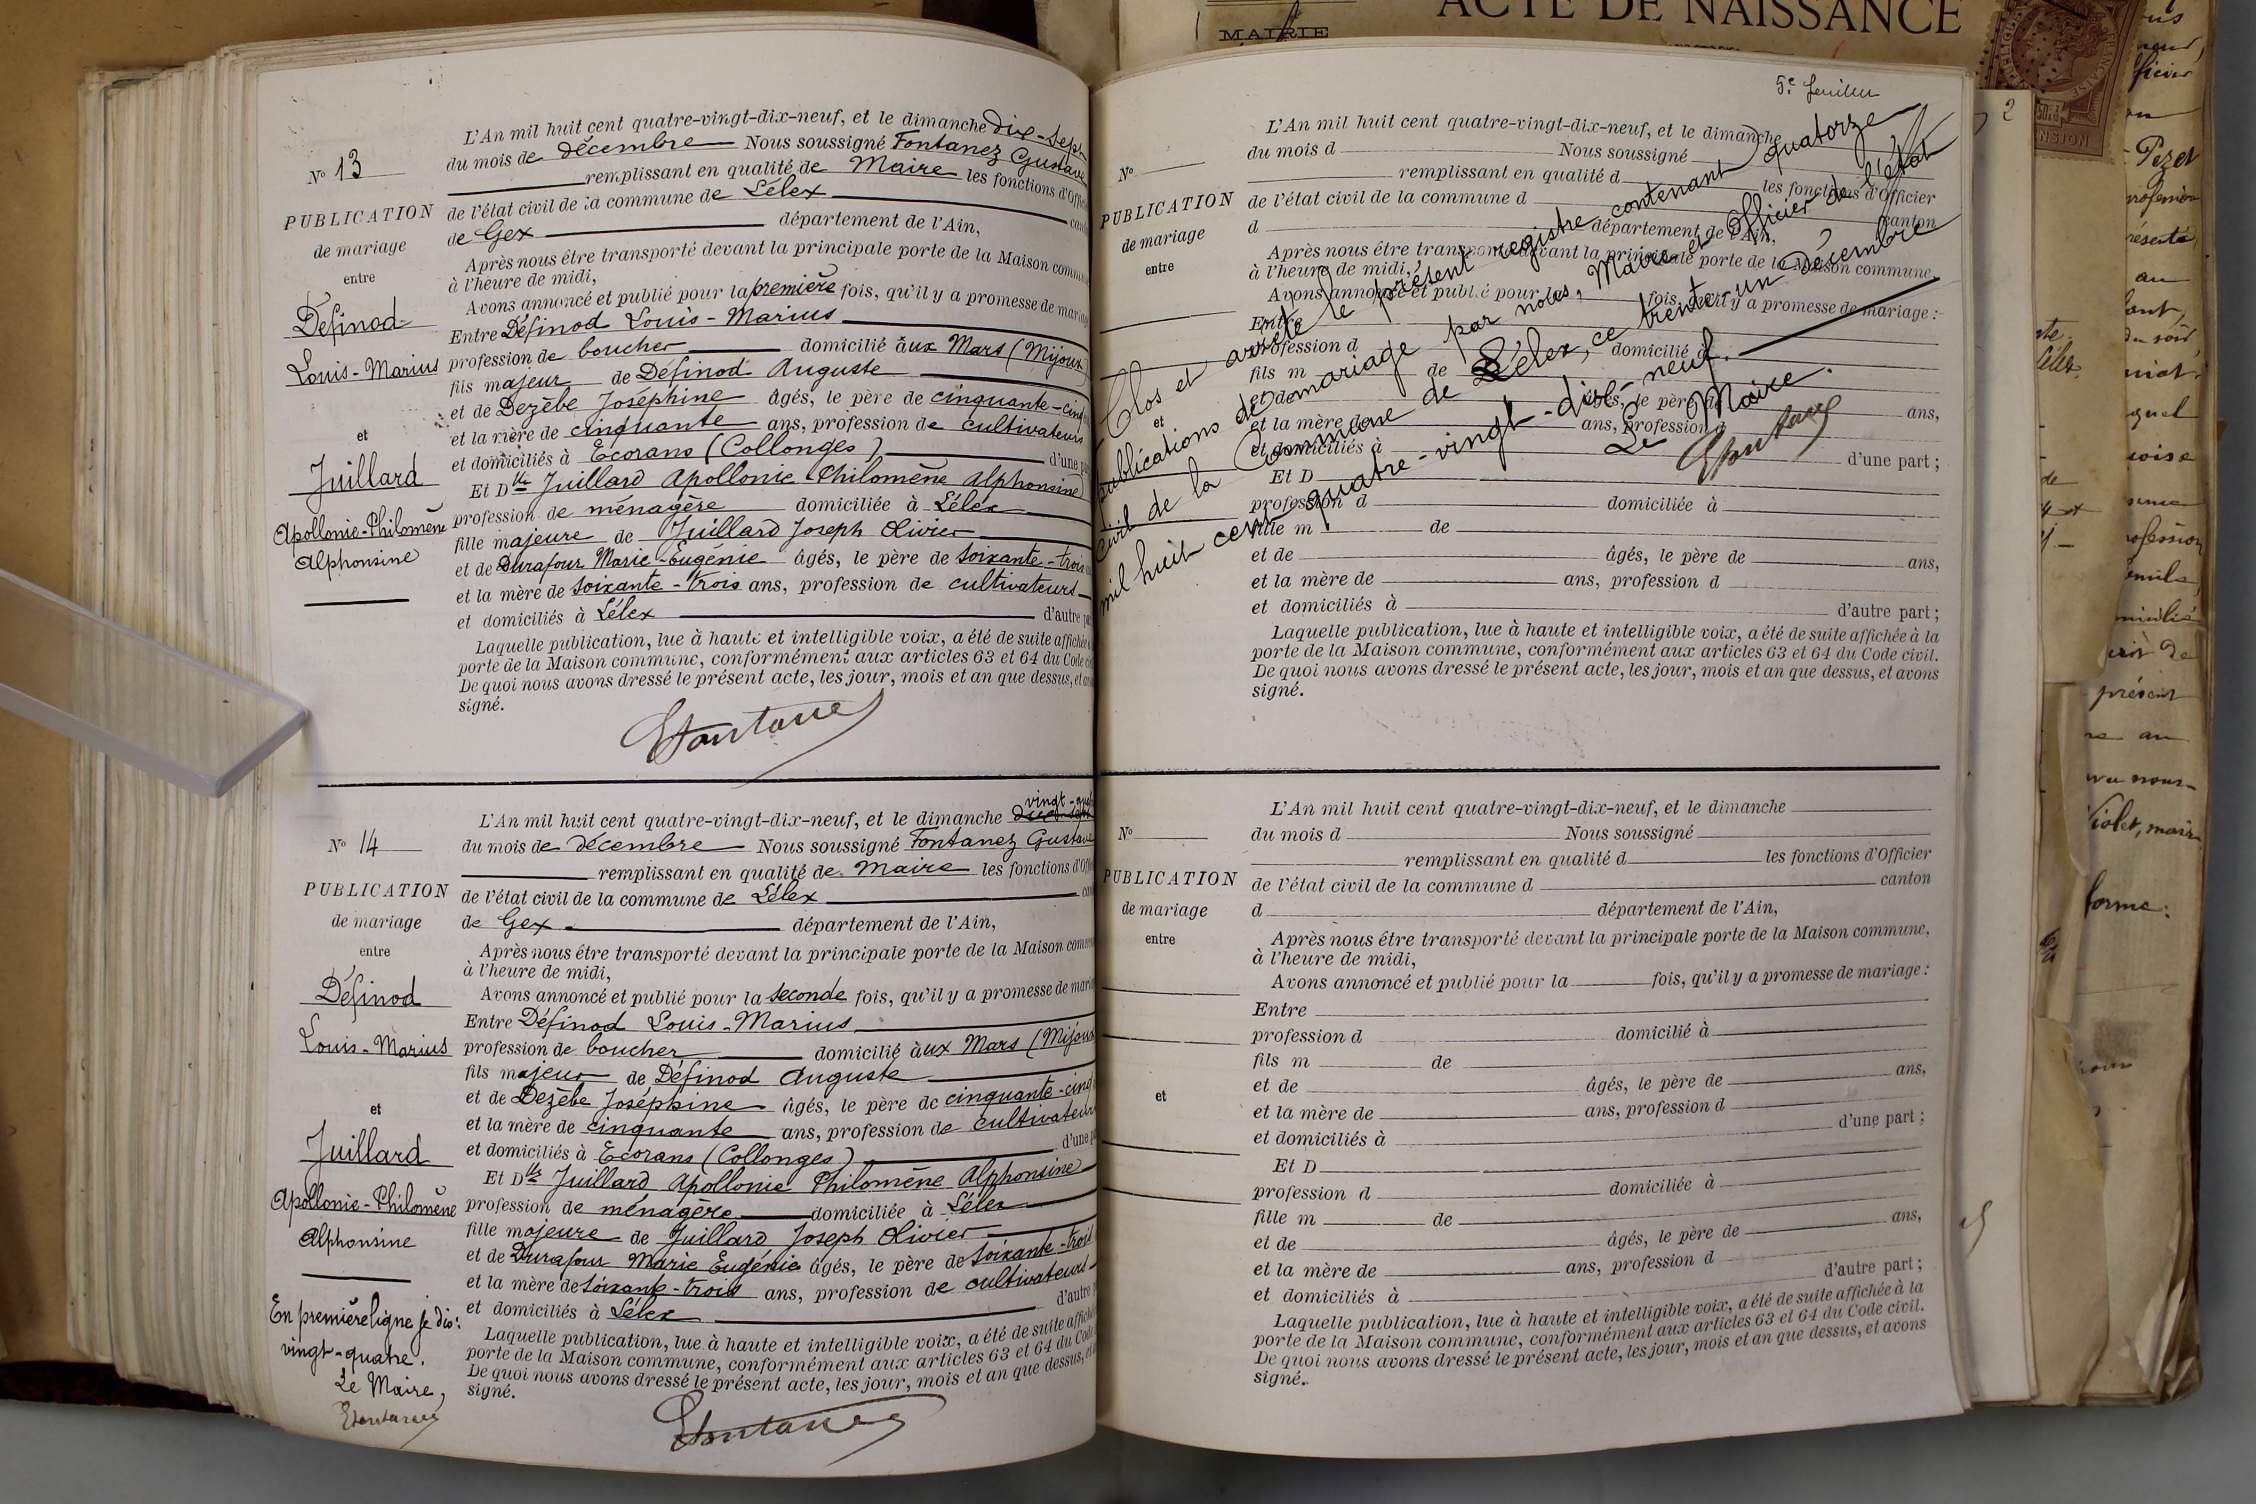 N° 13
PUBLICATION
de mariage
entre
Définod
Louis-Marius
et
Juillard
Apollonie-Philomène
Alphonsine
L'An mil huit cent quatre-vingt-dix-neuf, et le dimanche dix-sept
du mois de décembre Nous soussigné Fontanez Gustave
remplissant en qualité de Maire les fonctions d'Offici
de l'état civil de la commune de Lélex cant
de Gex département de l'Ain,
Après nous être transporté devant la principale porte de la Maison commu
à l'heure de midi,
Avons annoncé et publié pour la première fois, qu'il y a promesse de maria
Entre Définod Louis-Marius
profession de boucher domicilié aux Mars (Mijoux)
fils majeur de Définod Auguste
et de Dezèbe Joséphine âgés, le père de cinquante-cinq
et la mère de cinquante ans, profession de cultivateurs
et domiciliés à Ecorans (Collonges) d'une pa
Et Dlle Juillard Apollonie Philomène Alphonsine
profession de ménagère domiciliée à Lélex
fille majeure de Juillard Joseph Olivier
et de Durafour Marie-Eugénie âgés, le père de soixante-trois
et la mère de soixante-trois ans, profession de cultivateurs
et domiciliés à Lélex d'autre pa
Laquelle publication, lue à haute et intelligible voix, a été de suite affichée
porte de la Maison commune, conformément aux articles 63 et 64 du Code ci
De quoi nous avons dressé le présent acte, les jour, mois et an que dessus, et a
signé.
GFontanez
N° 14
PUBLICATION
de mariage
entre
Définod
Louis-Marius
et
Juillard
Apollonie-Philomène
Alphonsine
En première ligne je dis:
vingt-quatre.
Le Maire,
GFontanez
vingt-quat
L'An mil huit cent quatre-vingt-dix-neuf, et le dimanche dix-sept
du mois de décembre Nous soussigné Fontanez Gustave
remplissant en qualité de Maire les fonctions d'Offi
de l'état civil de la commune de Lélex can
de Gex département de l'Ain,
Après nous être transporté devant la principale porte de la Maison commu
à l'heure de midi,
Avons annoncé et publié pour la seconde fois, qu'il y a promesse de maria
Entre Définod Louis-Marius
profession de boucher domicilié aux Mars (Mijoux
fils majeur de Définod Auguste
et de Dezèbe Joséphine âgés, le père de cinquante-cinq
et la mère de cinquante ans, profession de cultivateurs
et domiciliés à Ecorans (Collonges) d'une pa
Et Dlle Juillard Apollonie Philomène Alphonsine
profession de ménagère domiciliée à Lélex
fille majeure de Juillard Joseph Olivier
et de Durafour Marie Eugénie âgés, le père de soixante-trois
et la mère de soixante-trois ans, profession de cultivateurs
et domiciliés à Lélex d'autre p
Laquelle publication, lue à haute et intelligible voix, a été de suite affiché
porte de la Maison commune, conformément aux articles 63 et 64 du Code
De quoi nous avons dressé le présent acte, les jour, mois et an que dessus, et
signé.
GFontanez
MAIRIE
ACTE DE NAISSANCE
5e feuillet
N°
PUBLICATION
de mariage
entre
et
L'An mil huit cent quatre-vingt-dix-neuf, et le dimanche
du mois d Nous soussigné
remplissant en qualité d les fonctions d'Officier
de l'état civil de la commune d canton
d département de l'Ain,
Après nous être transporté devant la principale porte de la Maison commune,
à l'heure de midi,
Avons annoncé et publié pour la fois, qu'il y a promesse de mariage :
Entre
profession d domicilié à
fils m de
et de âgés, le père de ans,
et la mère de ans, profession d
et domiciliés à d'une part ;
Et D
profession d domiciliée à
fille m de
et de âgés, le père de ans,
et la mère de ans, profession d
et domiciliés à d'autre part ;
Laquelle publication, lue à haute et intelligible voix, a été de suite affichée à la
porte de la Maison commune, conformément aux articles 63 et 64 du Code civil.
De quoi nous avons dressé le présent acte, les jour, mois et an que dessus, et avons
signé.
Clos et arrêté le présent registre contenant quatorze
publications de mariage par nous, Maire et Officier de l'état
civil de la Commune de Lélex, ce trente-un décembre
mil huit cent quatre-vingt-dix-neuf.
Le Maire.
GFontanez
N°
PUBLICATION
de mariage
entre
et
L'An mil huit cent quatre-vingt-dix-neuf, et le dimanche
du mois d Nous soussigné
remplissant en qualité d les fonctions d'Officier
de l'état civil de la commune d canton
d département de l'Ain,
Après nous être transporté devant la principale porte de la Maison commune,
à l'heure de midi,
Avons annoncé et publié pour la fois, qu'il y a promesse de mariage :
Entre
profession d domicilié à
fils m de
et de âgés, le père de ans,
et la mère de ans, profession d
et domiciliés à d'une part ;
Et D
profession d domiciliée à
fille m de
et de âgés, le père de ans,
et la mère de ans, profession d
et domiciliés à d'autre part ;
Laquelle publication, lue à haute et intelligible voix, a été de suite affichée à la
porte de la Maison commune, conformément aux articles 63 et 64 du Code civil.
De quoi nous avons dressé le présent acte, les jour, mois et an que dessus, et avons
signé.
2
Pezet
au
quel
de
présent
au
Violet, maire
forme: